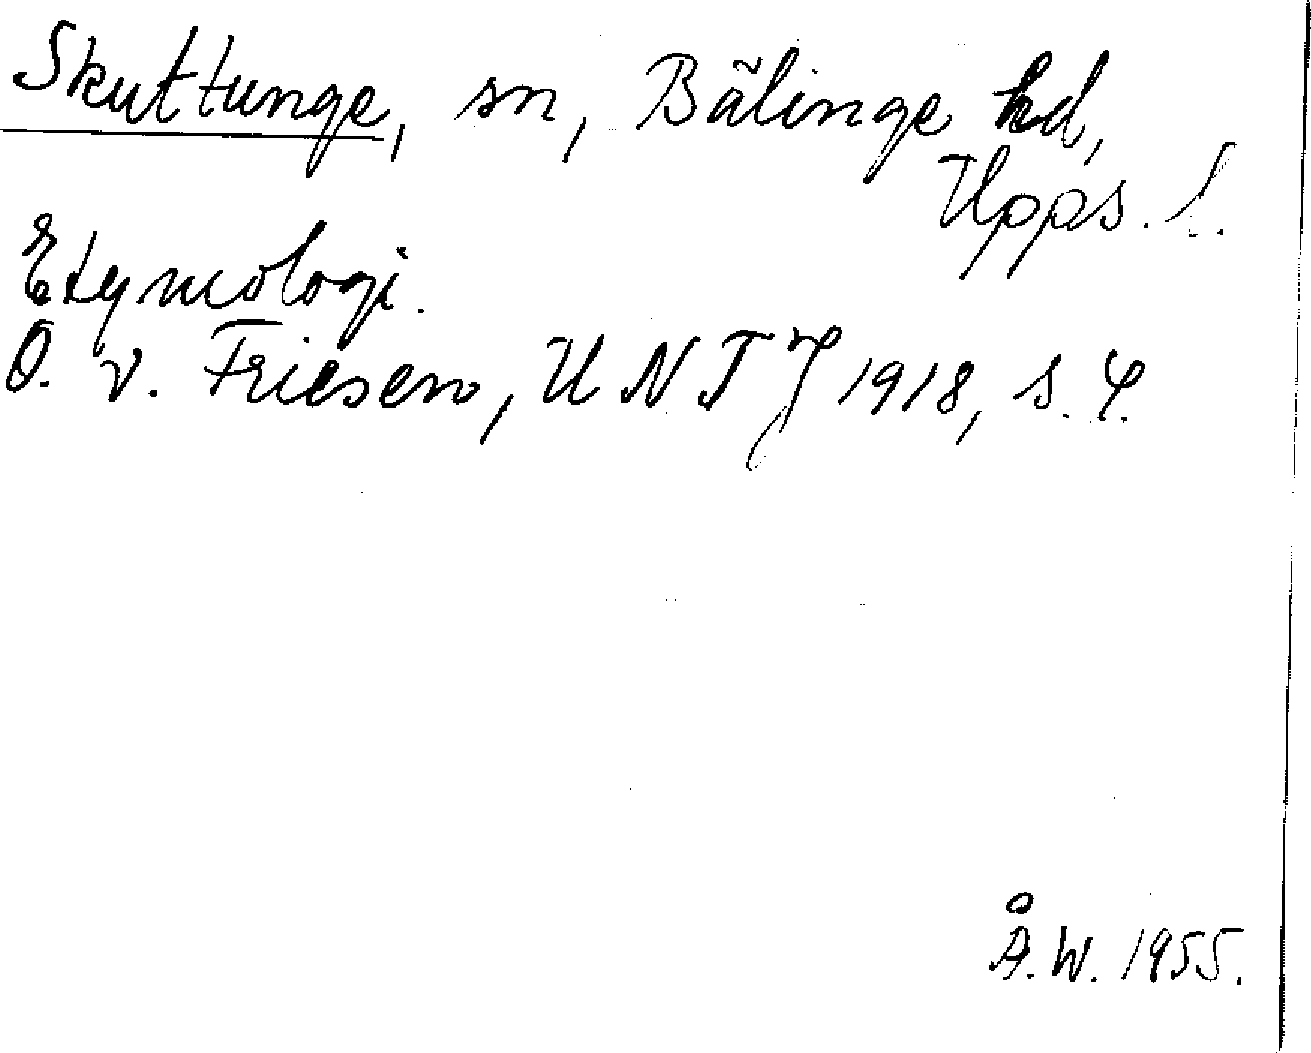 Skuttunge, sn, Bälinge hd,
Upps. l.
Etymologi.
O. v. Friesen, UNTJ 1918, s. 4.
Å. W. 1955.